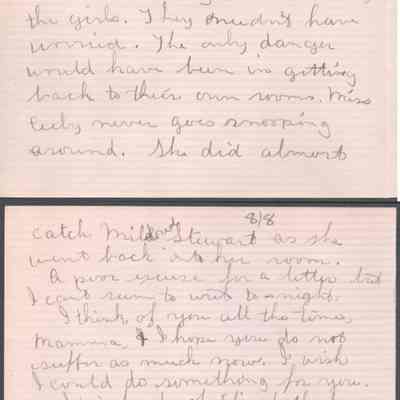 the girls. They needn't have
worried. The only danger
would have been in getting
back to their own rooms. Miss
never goes snooping
around. She did almost
8/8
catch Mildred Stewart as she
went back to her room.
A poor excuse for a letter but
I can't seem to write to-night.
I think of you all the time,
Mamma, & I hope you do not
suffer as much now. I wish
I could do something for you.